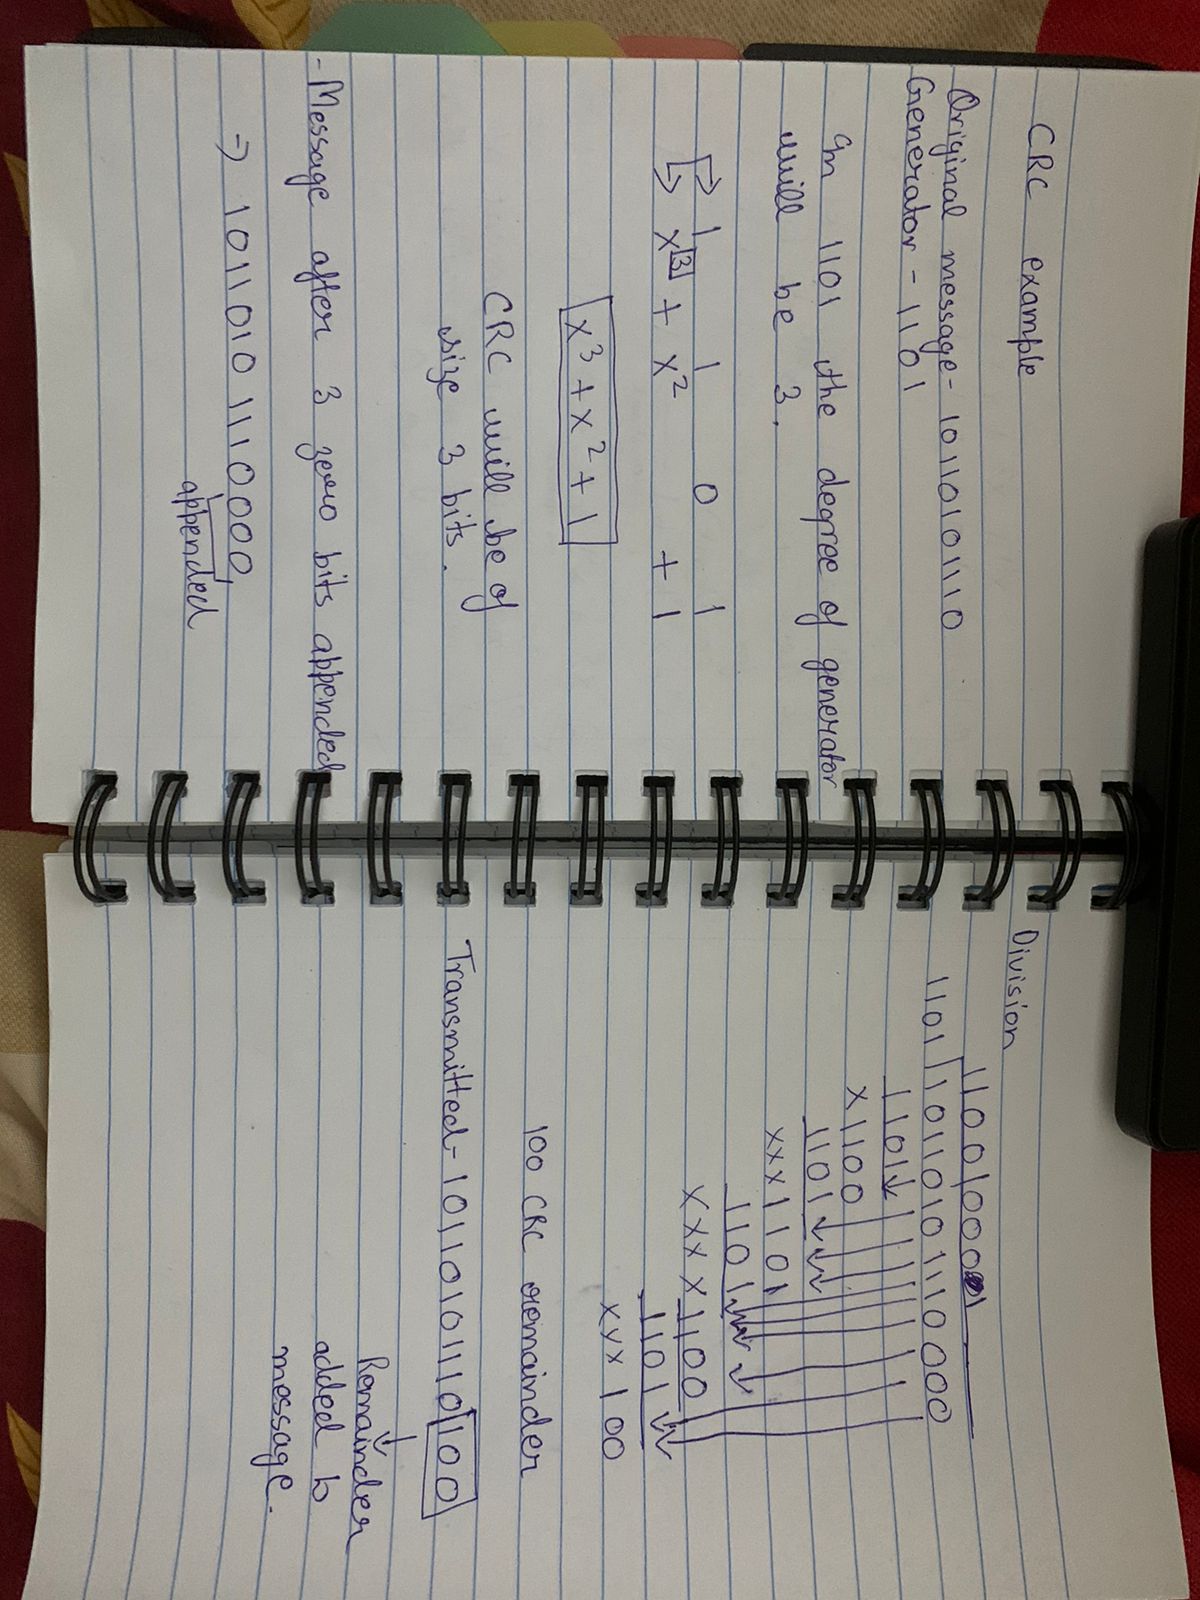 CRC example
Original message- 10110101110
Generator - 1101
In 1101 the degree of generator
will be 3.
1 1 0 1
x³ + x² + 1
x³ + x² + 1
CRC will be of
size 3 bits.
- Message after 3 zero bits appended
→ 10110101110000
appended
Division
1100100001
1101 10110101110000
1101
x1100
1101
xxx1101
1101
xxxx1100
1101
xxx100
100 CRC remainder
Transmitted- 10110101110100
Remainder
added to
message.